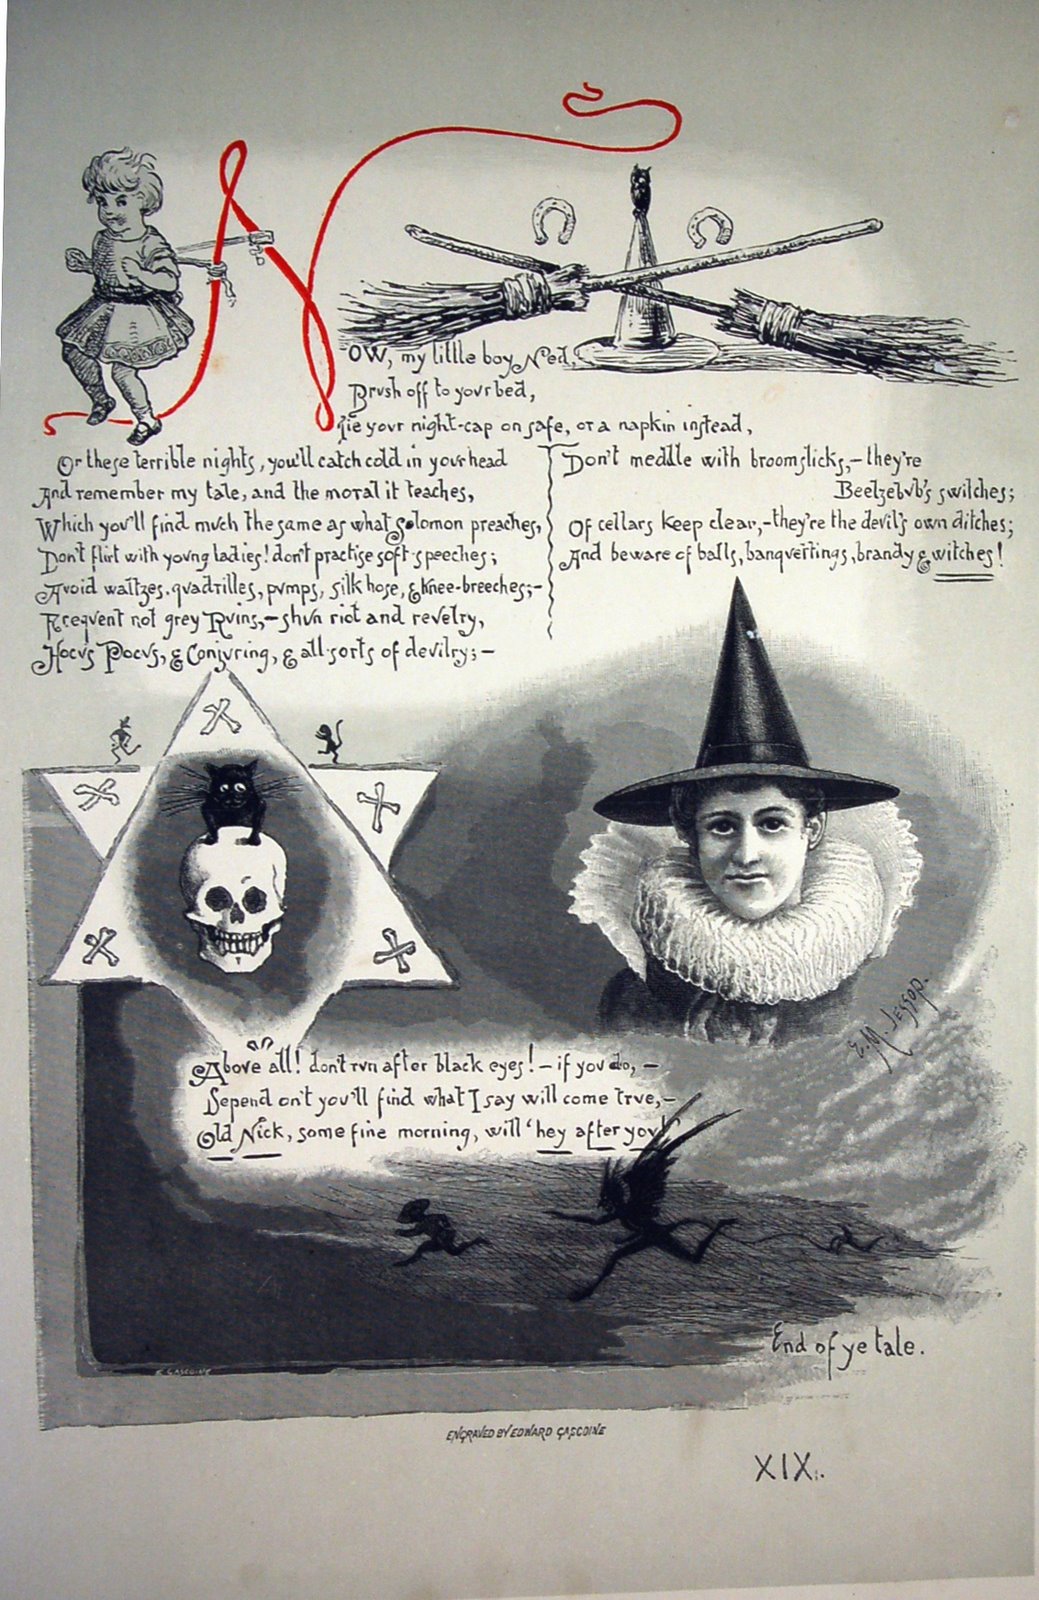 NOW, my little boy Ned,
Brush off to your bed,
Tie your night-cap on safe, or a napkin instead,
Or these terrible nights, you'll catch cold in your head
And remember my tale, and the moral it teaches,
Which you'll find much the same as what Solomon preaches,
Don't flirt with young ladies! don't practise soft-speeches;
Avoid waltzes, quadrilles, pumps, silk hose, & knee-breeches;-
Frequent not grey Ruins,- shun riot and revelry,
Hocus Pocus, & Conjuring, & all-sorts of devilry;-
Don't meddle with broomsticks,- they're
Beelzebub's switches;
Of cellars keep clear,- they're the devil's own ditches;
And beware of balls, banquettings, brandy & witches!
E.M. Jessop.
Above all! don't run after black eyes! - if you do, -
Depend on't you'll find what I say will come true,-
Old Nick, some fine morning, will 'hey after you!'
End of ye tale.
E GASCOINE
ENGRAVED BY EDWARD GASCOINE
XIX.